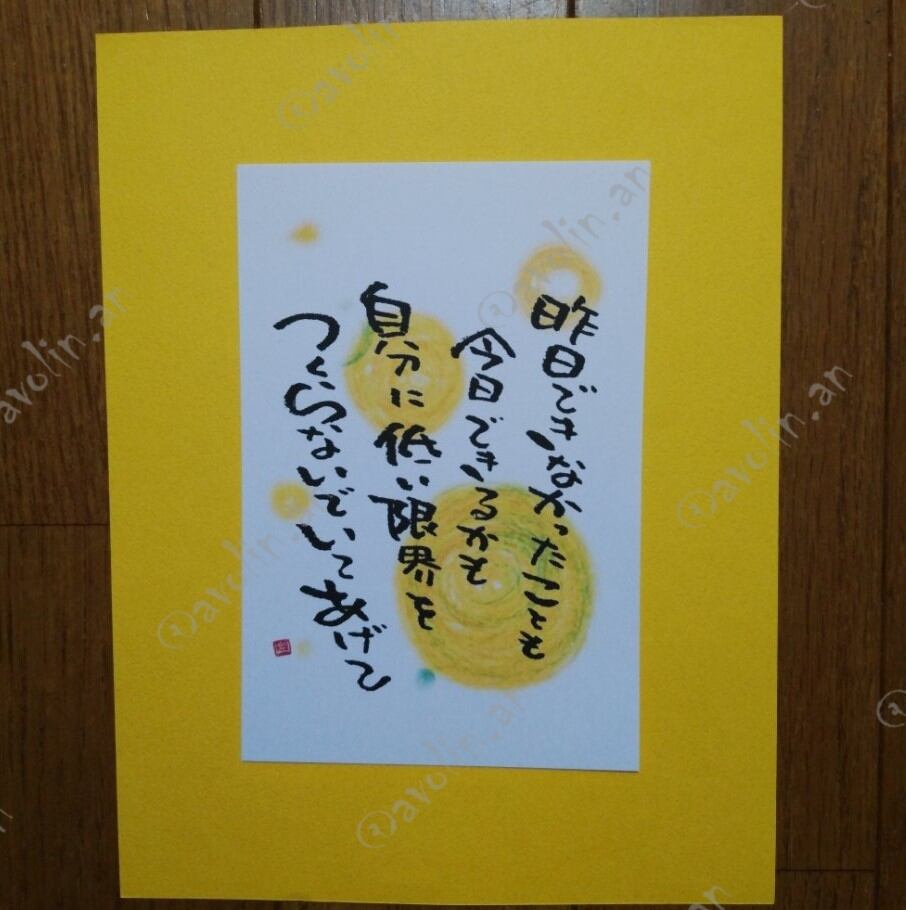 昨日できなかったことも
今日できるかも
自分に低い限界を
つくらないでいてあげて
@avolin.an
@avolin.an
@avolin.an
@avolin.an
@avolin.an
@avolin.an